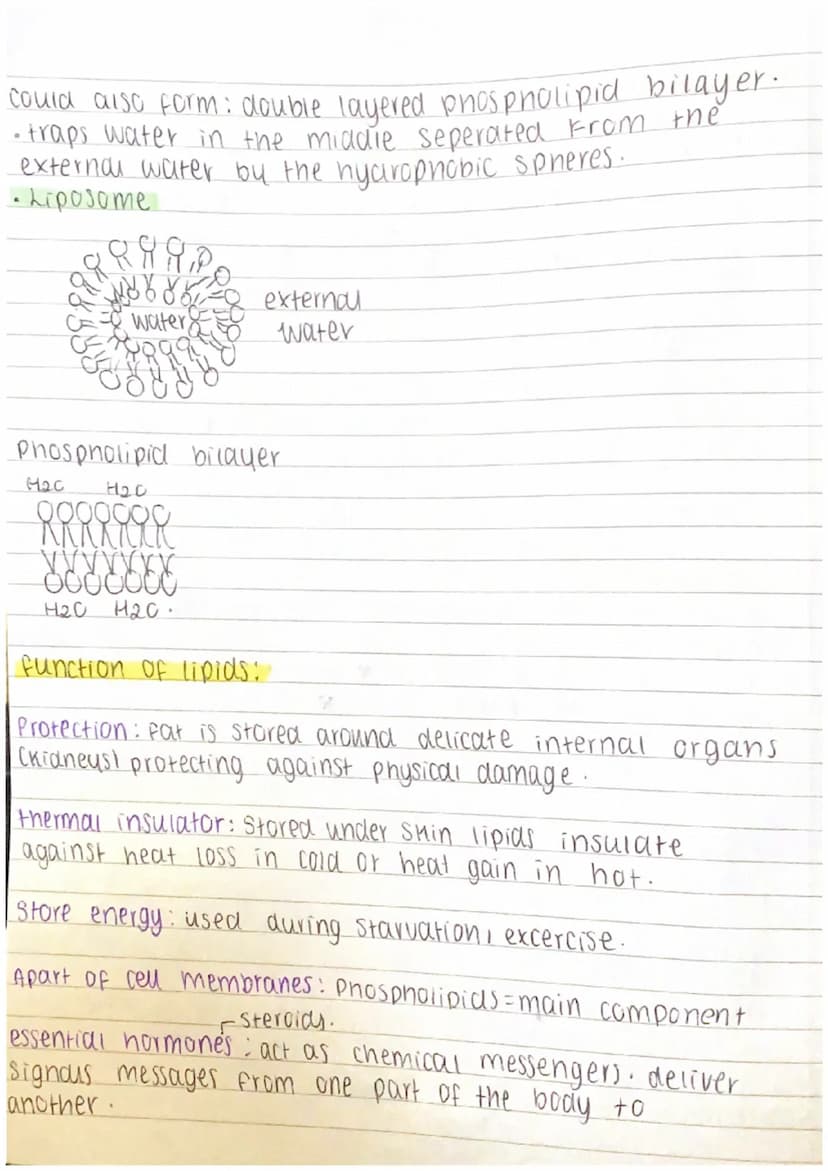 could also form: double layered phospholipid bilayer.
• traps water in the middle seperated from the
external water by the hydrophobic spheres.
• Liposome
water
external
water
Phospholipid bilayer
H2O H2O
H2O H2O.
function of lipids:
Protection: fat is stored around delicate internal organs
(kidneys) protecting against physical damage.
thermal insulator: stored under skin lipids insulate
against heat loss in cold or heat gain in hot.
Store energy: used during starvation, excercise.
Apart of cell membranes: phospholipids = main component
steroids.
essential hormones: act as chemical messengers. deliver
signals messages from one part of the body to
another.